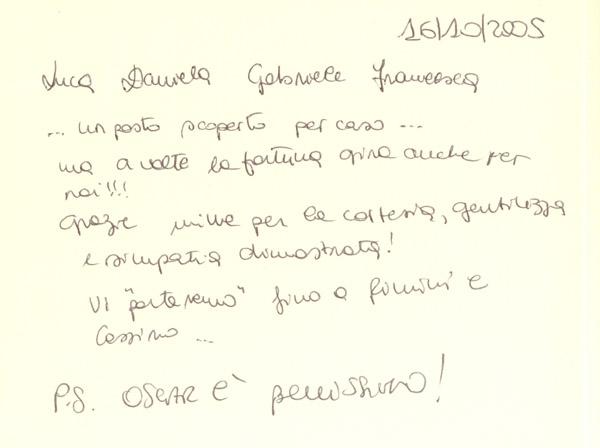 16/10/2005
Luca Daniela Gabriele Francesca
... un posto scoperto per caso ...
ma a volte la fortuna gira anche per
noi!!!
Grazie mille per la cortesia, gentilezza
e simpatia dimostrata!
Vi "porteremo" fino a Rimini e
Cassino ...
P.S. OSCAR È bellissimo!